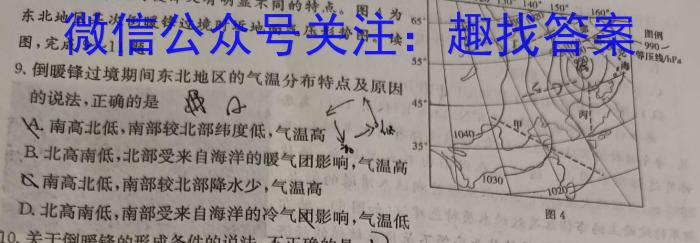 有明显不同的特点。图4为
东北地区
微信公众号关注：趣找答案
图,完成
9. 倒暖锋过境期间东北地区的气温分布特点及原因
的说法,正确的是
A. 南高北低,南部较北部纬度低,气温高
B. 北高南低,北部受来自海洋的暖气团影响,气温高
C. 南高北低,南部较北部降水少,气温高
D. 北高南低,南部受来自海洋的冷气团影响,气温低
10. 关于倒暖锋的形成条件的说法,不正确的是
130° 140° 150° 160°
65°
55°
45°
35°
图例
990
等压线/hPa
甲
丙
1040
1030
1020
图4